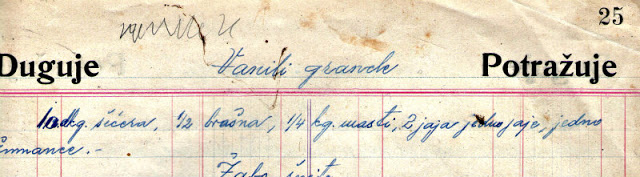 25
Duguje Vanili granck Potražuje
10 dkg. šićera, 1/2 brašna, 1/4 kg. masti, 2 jaja jedno jaje, jedno
žumance.-
Žabo šnite